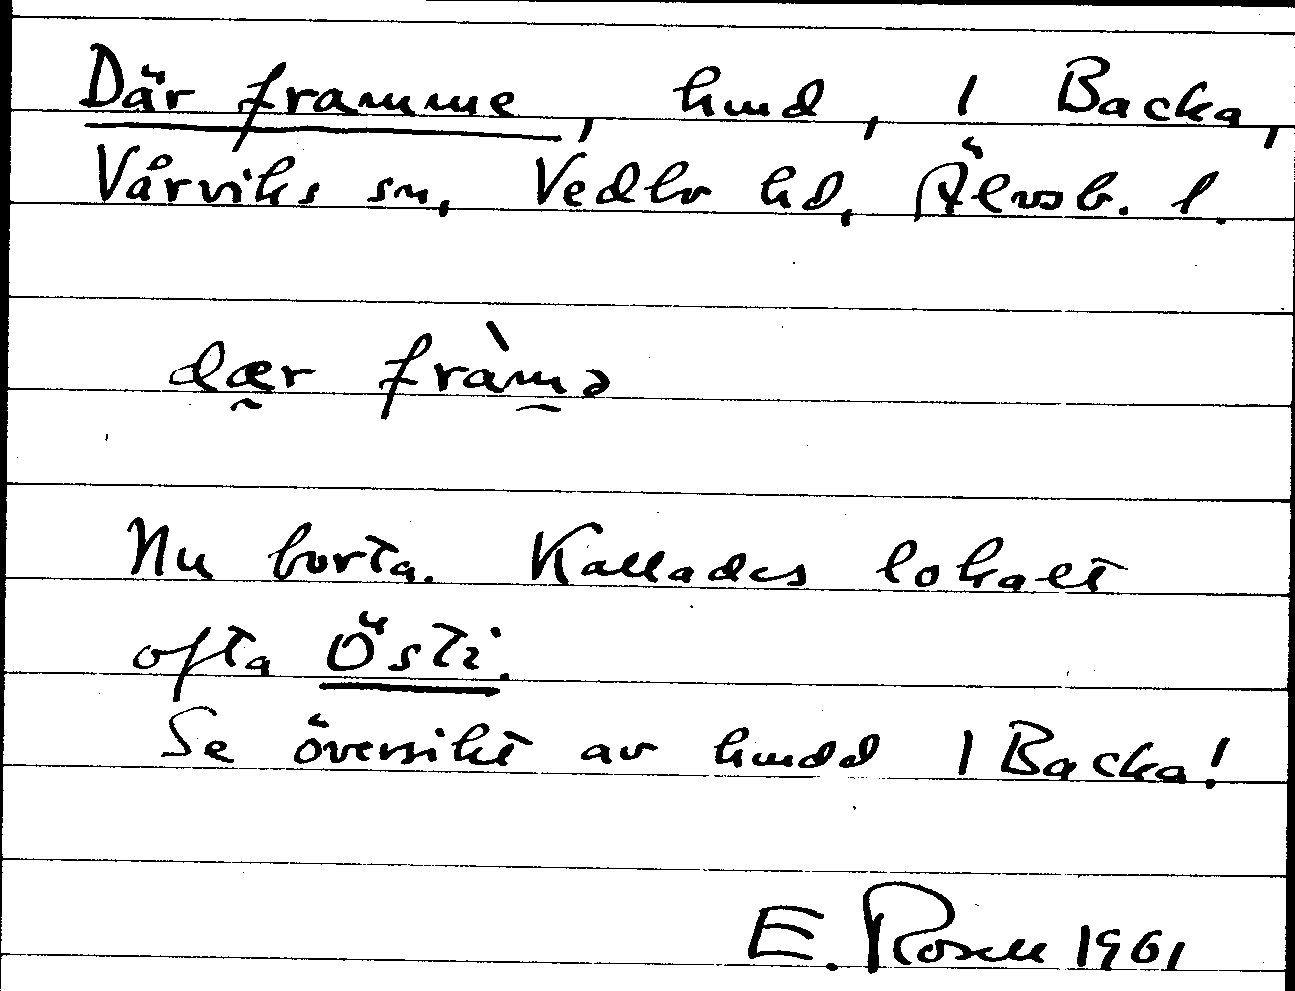 Där framme, hmd, 1 Backa,
Vårviks sn, Vedbo hd, Älvsb. l.
dær fràmə
Nu borta. Kallades lokalt
ofta Östi.
Se översikt av hmdd 1 Backa!
E. Rosell 1961